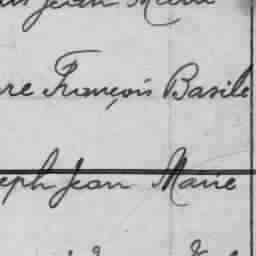 Jean Marie
re François Basile
eph Jean Marie